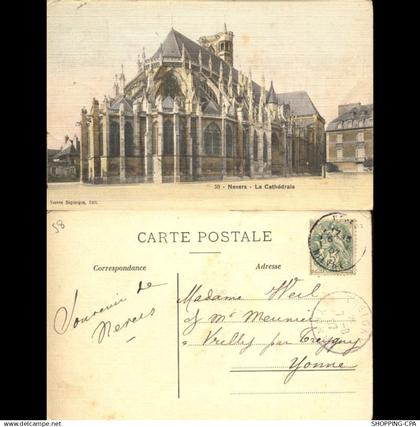 50 - Nevers - La Cathédrale
58
CARTE POSTALE
Correspondance
Adresse
Souvenir de
Nevers
Madame Weil
Mr Meunier
à Vrilly par Treigny
Yonne
SHOPPING-CPA